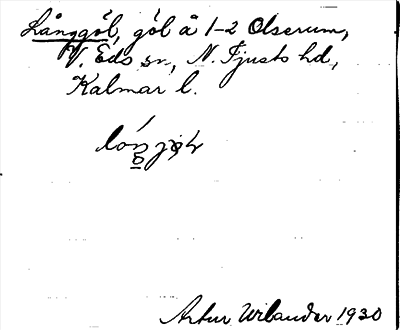 Långgöl, göl å 1-2 Olserum,
V. Eds sn., N. Tjusts hd,
Kalmar l.
Artur Wilander 1930